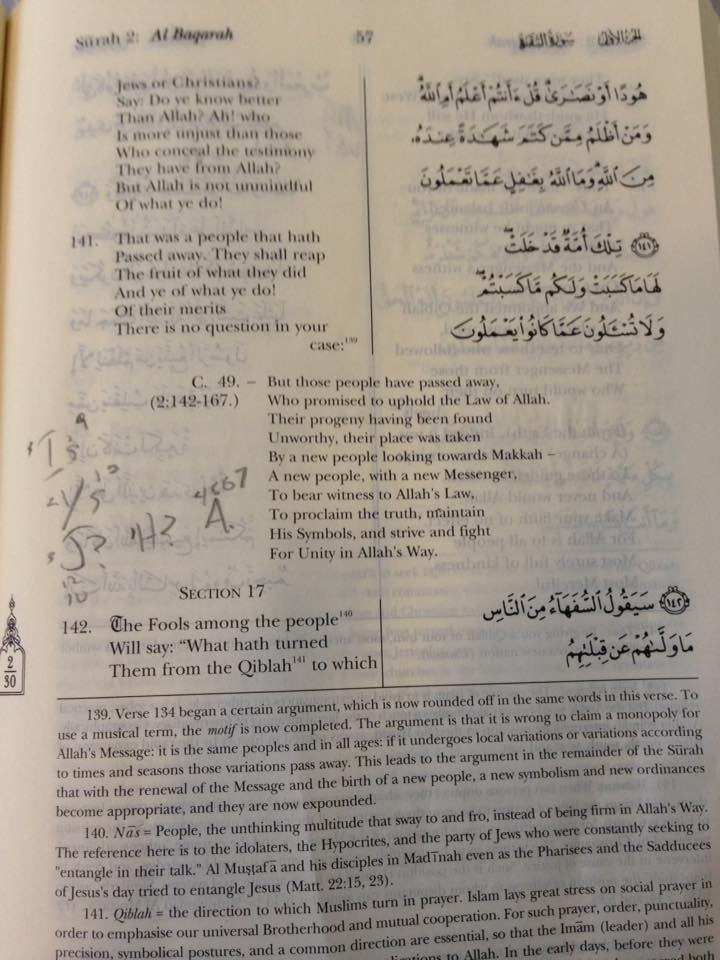 Sūrah 2: Al Baqarah
57
الجزء الأول
سورة البقرة
Jews or Christians?
Say: Do ye know better
Than Allah? Ah! who
Is more unjust than those
Who conceal the testimony
They have from Allah?
But Allah is not unmindful
Of what ye do!
هُودًا أَوْ نَصَٰرَىٰ قُلْ ءَأَنتُمْ أَعْلَمُ أَمِ ٱللَّهُ
وَمَنْ أَظْلَمُ مِمَّن كَتَمَ شَهَٰدَةً عِندَهُۥ
مِنَ ٱللَّهِ وَمَا ٱللَّهُ بِغَٰفِلٍ عَمَّا تَعْمَلُونَ
141. That was a people that hath
Passed away. They shall reap
The fruit of what they did
And ye of what ye do!
Of their merits
There is no question in your
case:139
١٤١ تِلْكَ أُمَّةٌ قَدْ خَلَتْ
لَهَا مَا كَسَبَتْ وَلَكُم مَّا كَسَبْتُمْ
وَلَا تُسْـَٔلُونَ عَمَّا كَانُوا۟ يَعْمَلُونَ
C. 49. – But those people have passed away,
(2:142-167.) Who promised to uphold the Law of Allah.
Their progeny having been found
Unworthy, their place was taken
By a new people looking towards Makkah –
A new people, with a new Messenger,
To bear witness to Allah's Law,
To proclaim the truth, maintain
His Symbols, and strive and fight
For Unity in Allah's Way.
SECTION 17
142. The Fools among the people140
Will say: "What hath turned
Them from the Qiblah141 to which
١٤٢ سَيَقُولُ ٱلسُّفَهَآءُ مِنَ ٱلنَّاسِ
مَا وَلَّىٰهُمْ عَن قِبْلَتِهِمُ
2
30
139. Verse 134 began a certain argument, which is now rounded off in the same words in this verse. To
use a musical term, the motif is now completed. The argument is that it is wrong to claim a monopoly for
Allah's Message: it is the same peoples and in all ages: if it undergoes local variations or variations according
to times and seasons those variations pass away. This leads to the argument in the remainder of the Sūrah
that with the renewal of the Message and the birth of a new people, a new symbolism and new ordinances
become appropriate, and they are now expounded.
140. Nās = People, the unthinking multitude that sway to and fro, instead of being firm in Allah's Way.
The reference here is to the idolaters, the Hypocrites, and the party of Jews who were constantly seeking to
"entangle in their talk." Al Muṣṭafā and his disciples in Madīnah even as the Pharisees and the Sadducees
of Jesus's day tried to entangle Jesus (Matt. 22:15, 23).
141. Qiblah = the direction to which Muslims turn in prayer. Islam lays great stress on social prayer in
order to emphasise our universal Brotherhood and mutual cooperation. For such prayer, order, punctuality,
precision, symbolical postures, and a common direction are essential, so that the Imām (leader) and all his
to Allah. In the early days, before they were